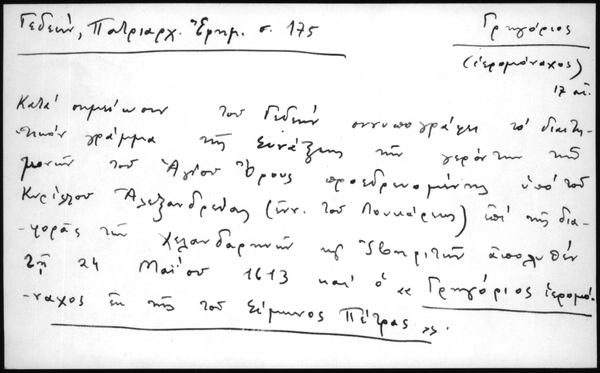 Γεδεών, Πατριαρχ. Ἐφημ. σ. 175
Γρηγόριος
(ἱερομόναχος)
17 αἰ.
Κατά σημείωσιν τοῦ Γεδεών συνυπογράφει τό διαιτη-
τικόν γράμμα τῆς συνάξεως τῶν γερόντων τῶν
μονῶν τοῦ Ἁγίου Ὄρους προεδρευομένης ὑπό τοῦ
Κυρίλλου Ἀλεξανδρείας (ἐνν. τοῦ Λουκάρεως) ἐπί τῆς δια-
-φορᾶς τῶν Χελανδαρηνῶν κ Ἰβηριτῶν ἀπολυθέν
τῇ 24 Μαΐου 1613 καί ὁ «Γρηγόριος ἱερομό-
-ναχος ἐκ τῆς τοῦ Σίμωνος Πέτρας».